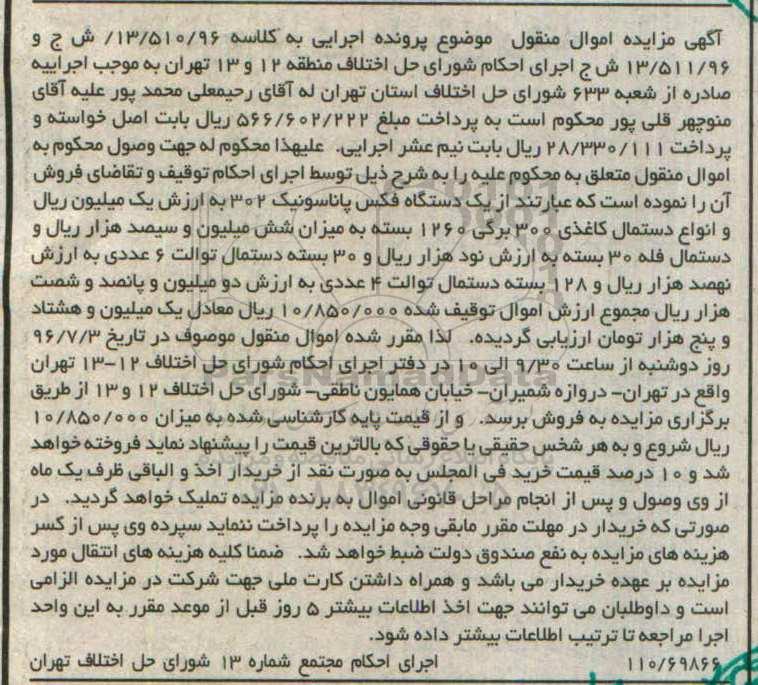 آگهی مزایده اموال منقول موضوع پرونده اجرایی به کلاسه ۱۳/۵۱۰/۹۶/ ش ج و
۱۳/۵۱۱/۹۶ ش ج اجرای احکام شورای حل اختلاف منطقه ۱۲ و ۱۳ تهران به موجب اجراییه
صادره از شعبه ۶۳۳ شورای حل اختلاف استان تهران له آقای رحیمعلی محمد پور علیه آقای
منوچهر قلی پور محکوم است به پرداخت مبلغ ۵۶۶/۶۰۲/۲۲۲ ریال بابت اصل خواسته و
پرداخت ۲۸/۳۳۰/۱۱۱ ریال بابت نیم عشر اجرایی. علیهذا محکوم له جهت وصول محکوم به
اموال منقول متعلق به محکوم علیه را به شرح ذیل توسط اجرای احکام توقیف و تقاضای فروش
آن را نموده است که عبارتند از یک دستگاه فکس پاناسونیک ۳۰۲ به ارزش یک میلیون ریال
و انواع دستمال کاغذی ۳۰۰ برگی ۱۲۶۰ بسته به میزان شش میلیون و سیصد هزار ریال و
دستمال فله ۳۰ بسته به ارزش نود هزار ریال و ۳۰ بسته دستمال توالت ۶ عددی به ارزش
نهصد هزار ریال و ۱۲۸ بسته دستمال توالت ۴ عددی به ارزش دو میلیون و پانصد و شصت
هزار ریال مجموع ارزش اموال توقیف شده ۱۰/۸۵۰/۰۰۰ ریال معادل یک میلیون و هشتاد
و پنج هزار تومان ارزیابی گردیده. لذا مقرر شده اموال منقول موصوف در تاریخ ۹۶/۷/۳
روز دوشنبه از ساعت ۹/۳۰ الی ۱۱ در دفتر اجرای احکام شورای حل اختلاف ۱۲-۱۳ تهران
واقع در تهران- دروازه شمیران- خیابان همایون ناطقی- شورای حل اختلاف ۱۲ و ۱۳ از طریق
برگزاری مزایده به فروش برسد. و از قیمت پایه کارشناسی شده به میزان ۱۰/۸۵۰/۰۰۰
ریال شروع و به هر شخص حقیقی یا حقوقی که بالاترین قیمت را پیشنهاد نماید فروخته خواهد
شد و ۱۰ درصد قیمت خرید فی المجلس به صورت نقد از خریدار اخذ و الباقی ظرف یک ماه
از وی وصول و پس از انجام مراحل قانونی اموال به برنده مزایده تملیک خواهد گردید. در
صورتی که خریدار در مهلت مقرر مابقی وجه مزایده را پرداخت ننماید سپرده وی پس از کسر
هزینه های مزایده به نفع صندوق دولت ضبط خواهد شد. ضمنا کلیه هزینه های انتقال مورد
مزایده بر عهده خریدار می باشد و همراه داشتن کارت ملی جهت شرکت در مزایده الزامی
است و داوطلبان می توانند جهت اخذ اطلاعات بیشتر ۵ روز قبل از موعد مقرر به این واحد
اجرا مراجعه تا ترتیب اطلاعات بیشتر داده شود.
۱۱۰/۶۹۸۶۶ اجرای احکام مجتمع شماره ۱۳ شورای حل اختلاف تهران